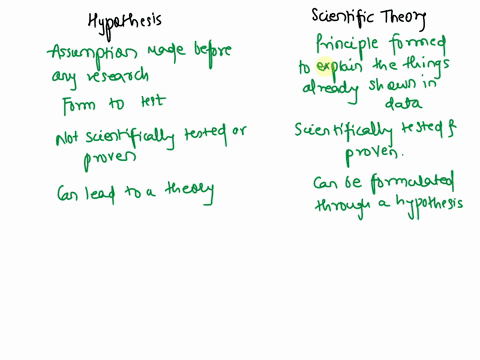 Hypothesis
Assumption made before
any research
Form to test
Not scientifically tested or
proven
Can lead to a theory
Scientific Theory
Principle formed
to explain the things
already shown in
data
Scientifically tested &
proven.
Can be formulated
through a hypothesis